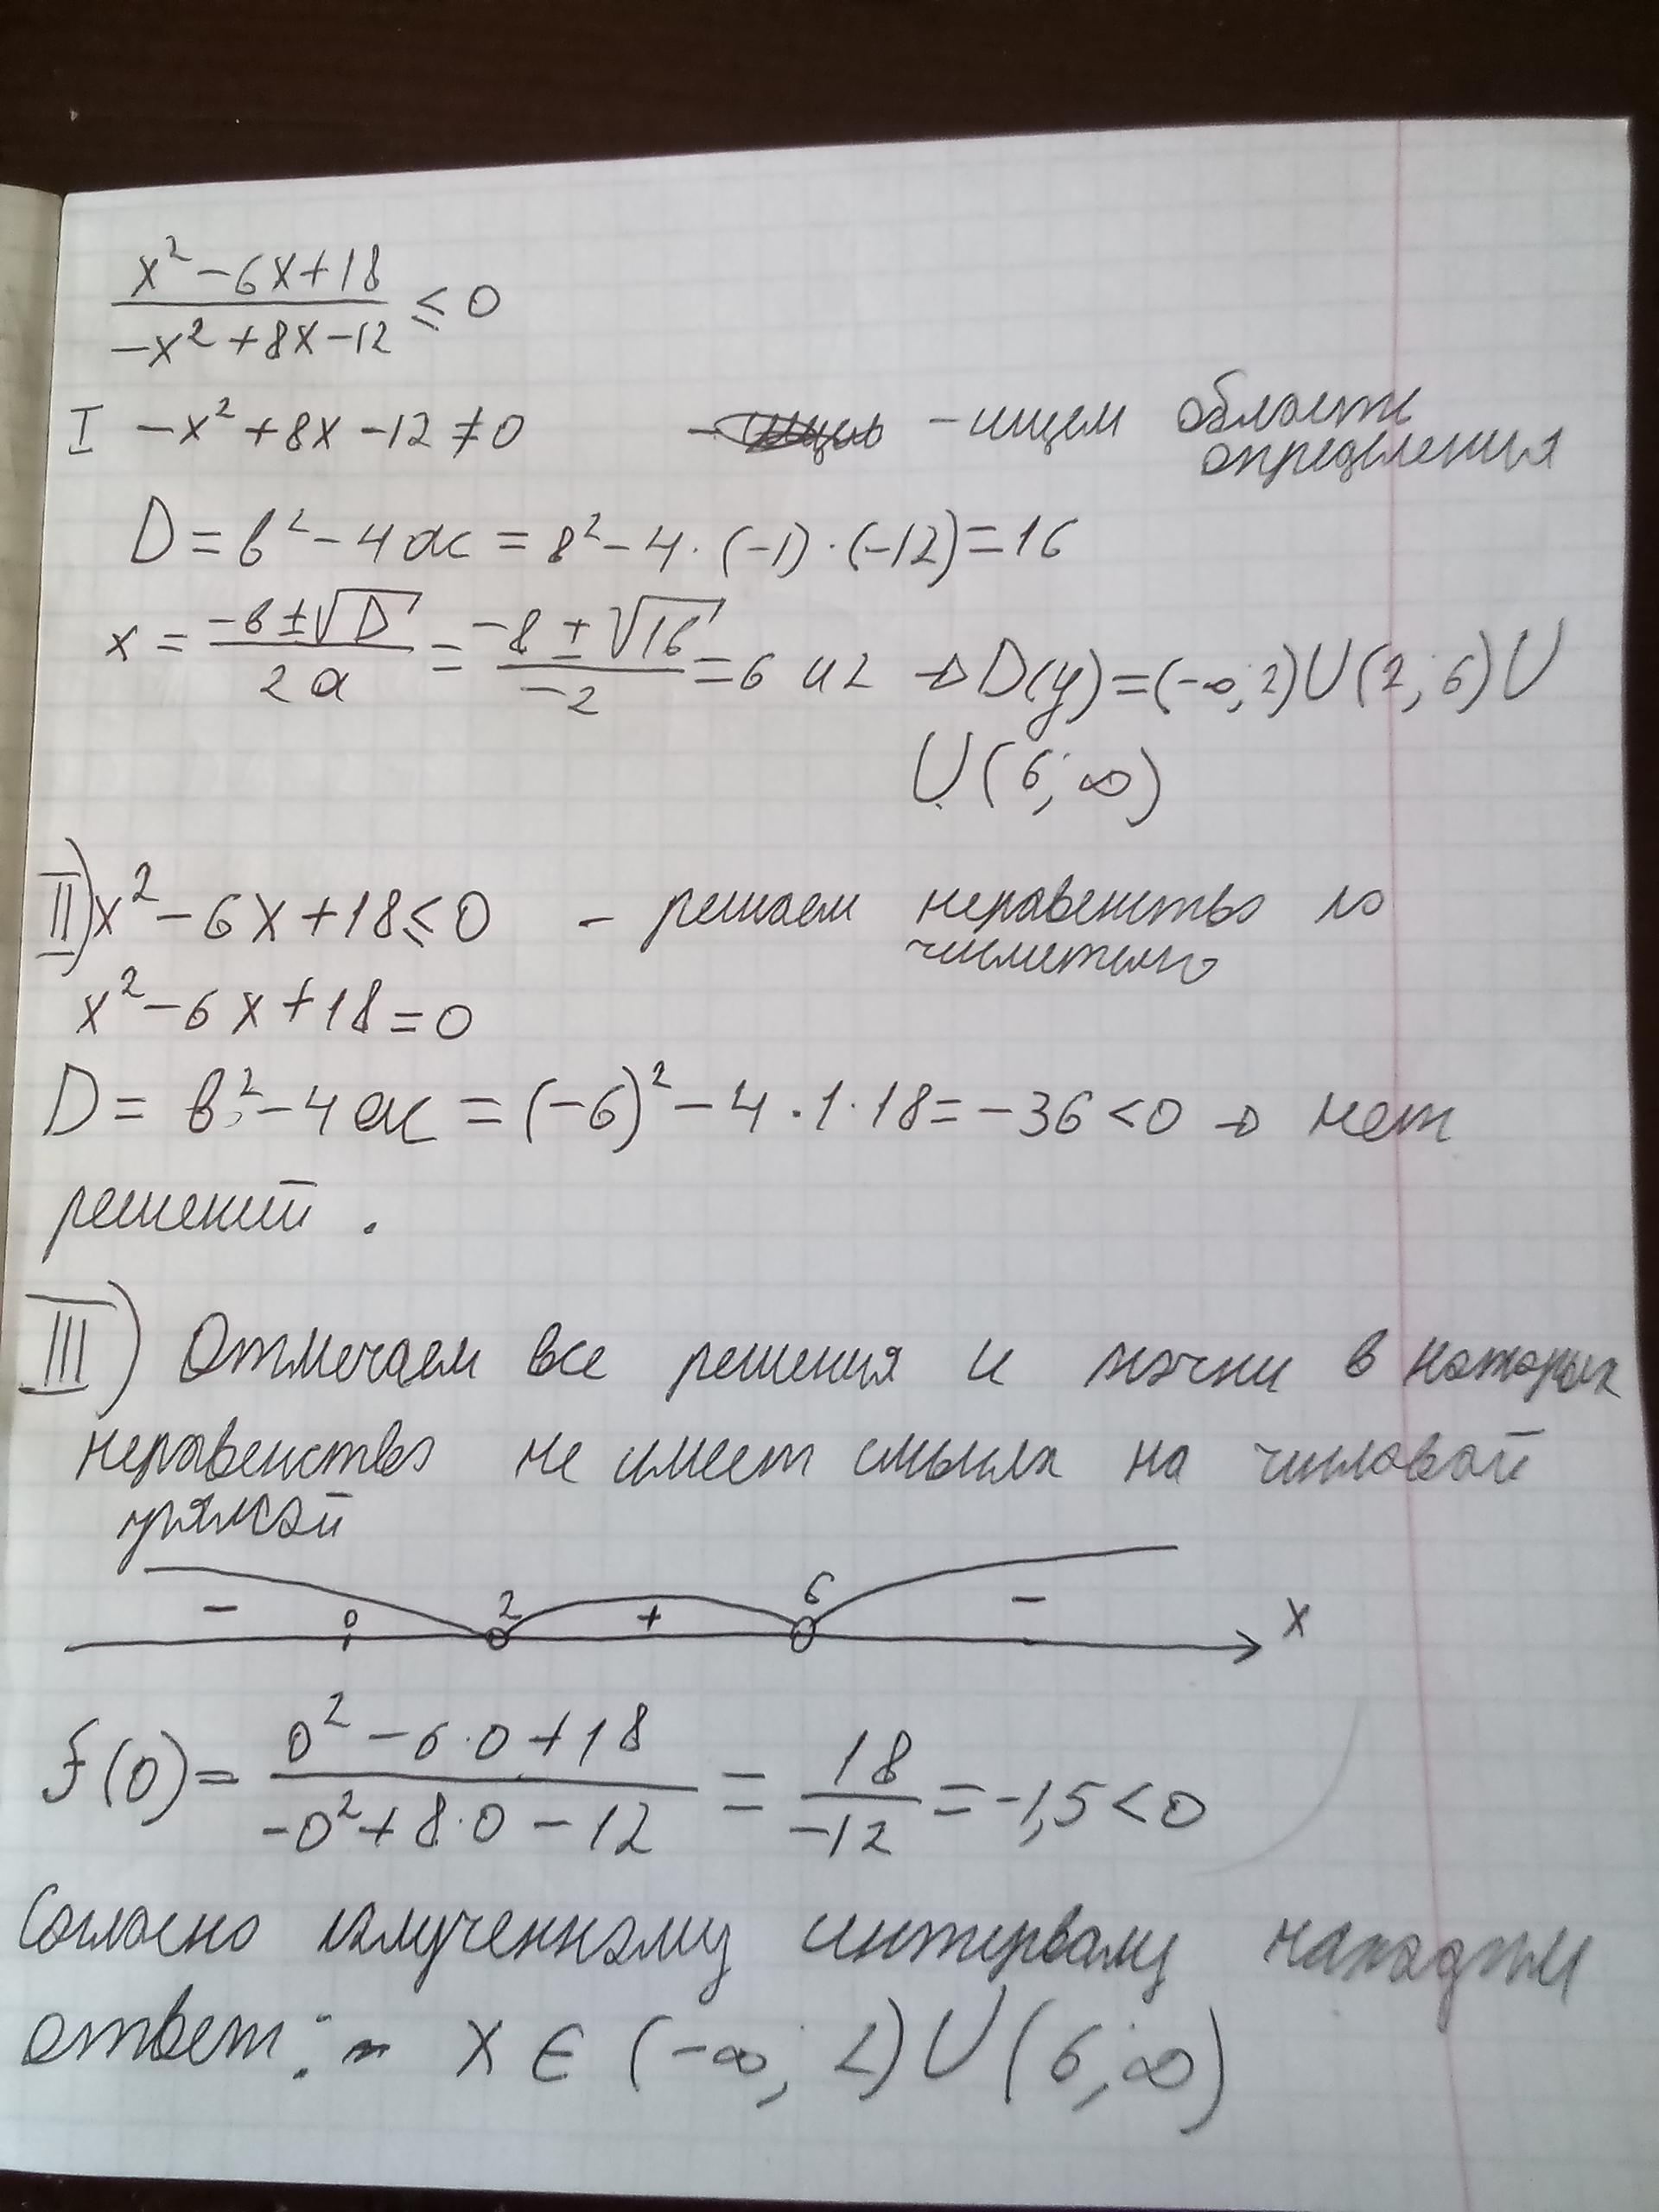 x² - 6x + 18
-x² + 8x - 12 ≤ 0
I -x² + 8x - 12 ≠ 0 - ищем область
определения
D = b² - 4ac = 8² - 4 · (-1) · (-12) = 16
x = (-b ± √D)/(2a) = (-8 ± √16)/(-2) = 6 и 2 → D(y) = (-∞; 2) U (2; 6) U
U (6; ∞)
II) x² - 6x + 18 ≤ 0 - решаем неравенство по
числителю
x² - 6x + 18 = 0
D = b² - 4ac = (-6)² - 4 · 1 · 18 = -36 < 0 → нет
решений.
III) Отмечаем все решения и точки в которых
неравенство не имеет смысла на числовой
прямой
- 0 2 + 6 - x
f(0) = (0² - 6·0 + 18)/(-0² + 8·0 - 12) = 18/(-12) = -1,5 < 0
Согласно полученному интервалу находим
ответ: x ∈ (-∞; 2) U (6; ∞)